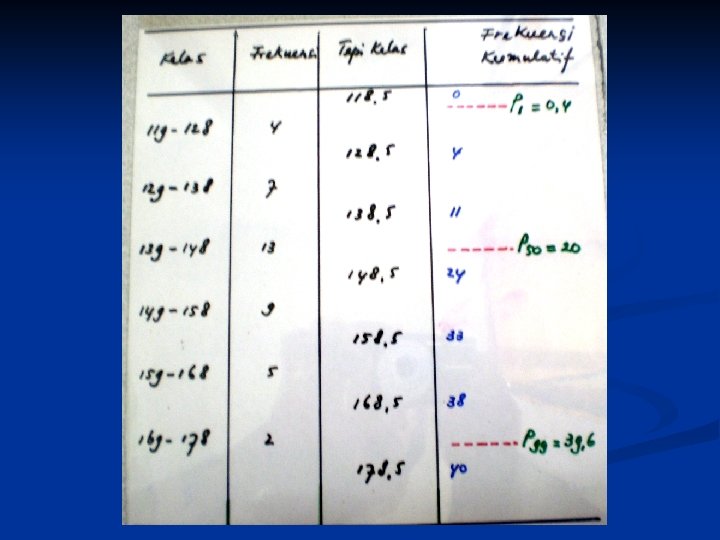 Kelas Frekuensi Tepi Kelas Frekuensi Kumulatif
118,5 0 P1 = 0,4
119 - 128 4
128,5 4
129 - 138 7
138,5 11
139 - 148 13 P50 = 20
148,5 24
149 - 158 9
158,5 33
159 - 168 5
168,5 38
169 - 178 2 P99 = 39,6
178,5 40